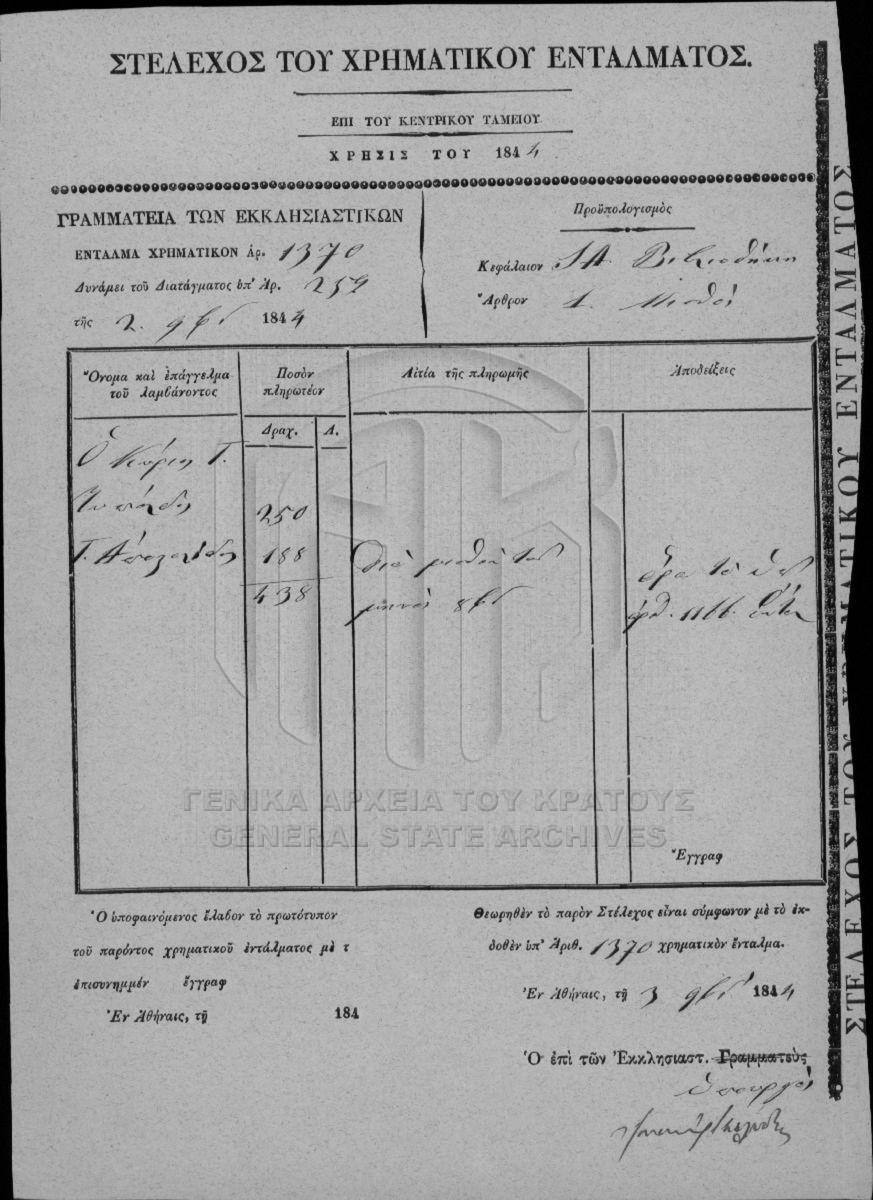 ΣΤΕΛΕΧΟΣ ΤΟΥ ΧΡΗΜΑΤΙΚΟΥ ΕΝΤΑΛΜΑΤΟΣ.
ΕΠΙ ΤΟΥ ΚΕΝΤΡΙΚΟΥ ΤΑΜΕΙΟΥ
ΧΡΗΣΙΣ ΤΟΥ 1844
ΓΡΑΜΜΑΤΕΙΑ ΤΩΝ ΕΚΚΛΗΣΙΑΣΤΙΚΩΝ
ΕΝΤΑΛΜΑ ΧΡΗΜΑΤΙΚΟΝ Ἀρ. 1370
Δυνάμει τοῦ Διατάγματος ὑπ' Ἀρ. 259
τῆς 2. 9βρ 1844
Προϋπολογισμὸς
Κεφάλαιον ΙΑ Βιβλιοθήκη
Ἄρθρον 1. Μισθοί
Ὄνομα καὶ ἐπάγγελμα
τοῦ λαμβάνοντος
Ποσὸν
πληρωτέον
Αἰτία τῆς πληρωμῆς
Ἀποδείξεις
Δραχ. Λ.
Ὁ Κύριος Γ.
Τυπάλδος 250
Γ. Ἀποστολίδης 188 διὰ μισθόν των ὅρα τὸ ὑπ
438 μηνὸς 8βρ ἀρθ. 1166.
Ἔγγραφ
Ὁ ὑποφαινόμενος ἔλαβον τὸ πρωτότυπον
τοῦ παρόντος χρηματικοῦ ἐντάλματος μὲ τ
ἐπισυνημμέν ἔγγραφ
Ἐν Ἀθήναις, τῇ 184
Θεωρηθὲν τὸ παρὸν Στέλεχος εἶναι σύμφωνον μὲ τὸ ἐκ-
δοθὲν ὑπ' Ἀριθ. 1370 χρηματικὸν ἔνταλμα.
Ἐν Ἀθήναις, τῇ 3 9βρ 1844
Ὁ ἐπὶ τῶν Ἐκκλησιαστ. Γραμματεὺς
ὑπουργός
ΣΤΕΛΕΧΟΣ ΤΟΥ ΧΡΗΜΑΤΙΚΟΥ ΕΝΤΑΛΜΑΤΟΣ
ΓΕΝΙΚΑ ΑΡΧΕΙΑ ΤΟΥ ΚΡΑΤΟΥΣ
GENERAL STATE ARCHIVES